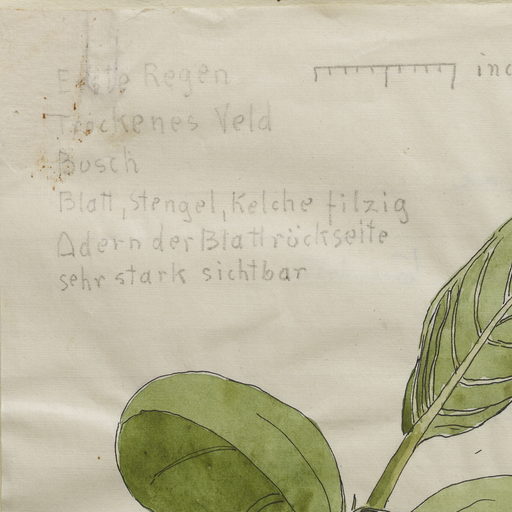 Erste Regen
inc
Trockenes Veld
Busch
Blatt, Stengel, Kelche filzig
Adern der Blattrückseite
sehr stark sichtbar